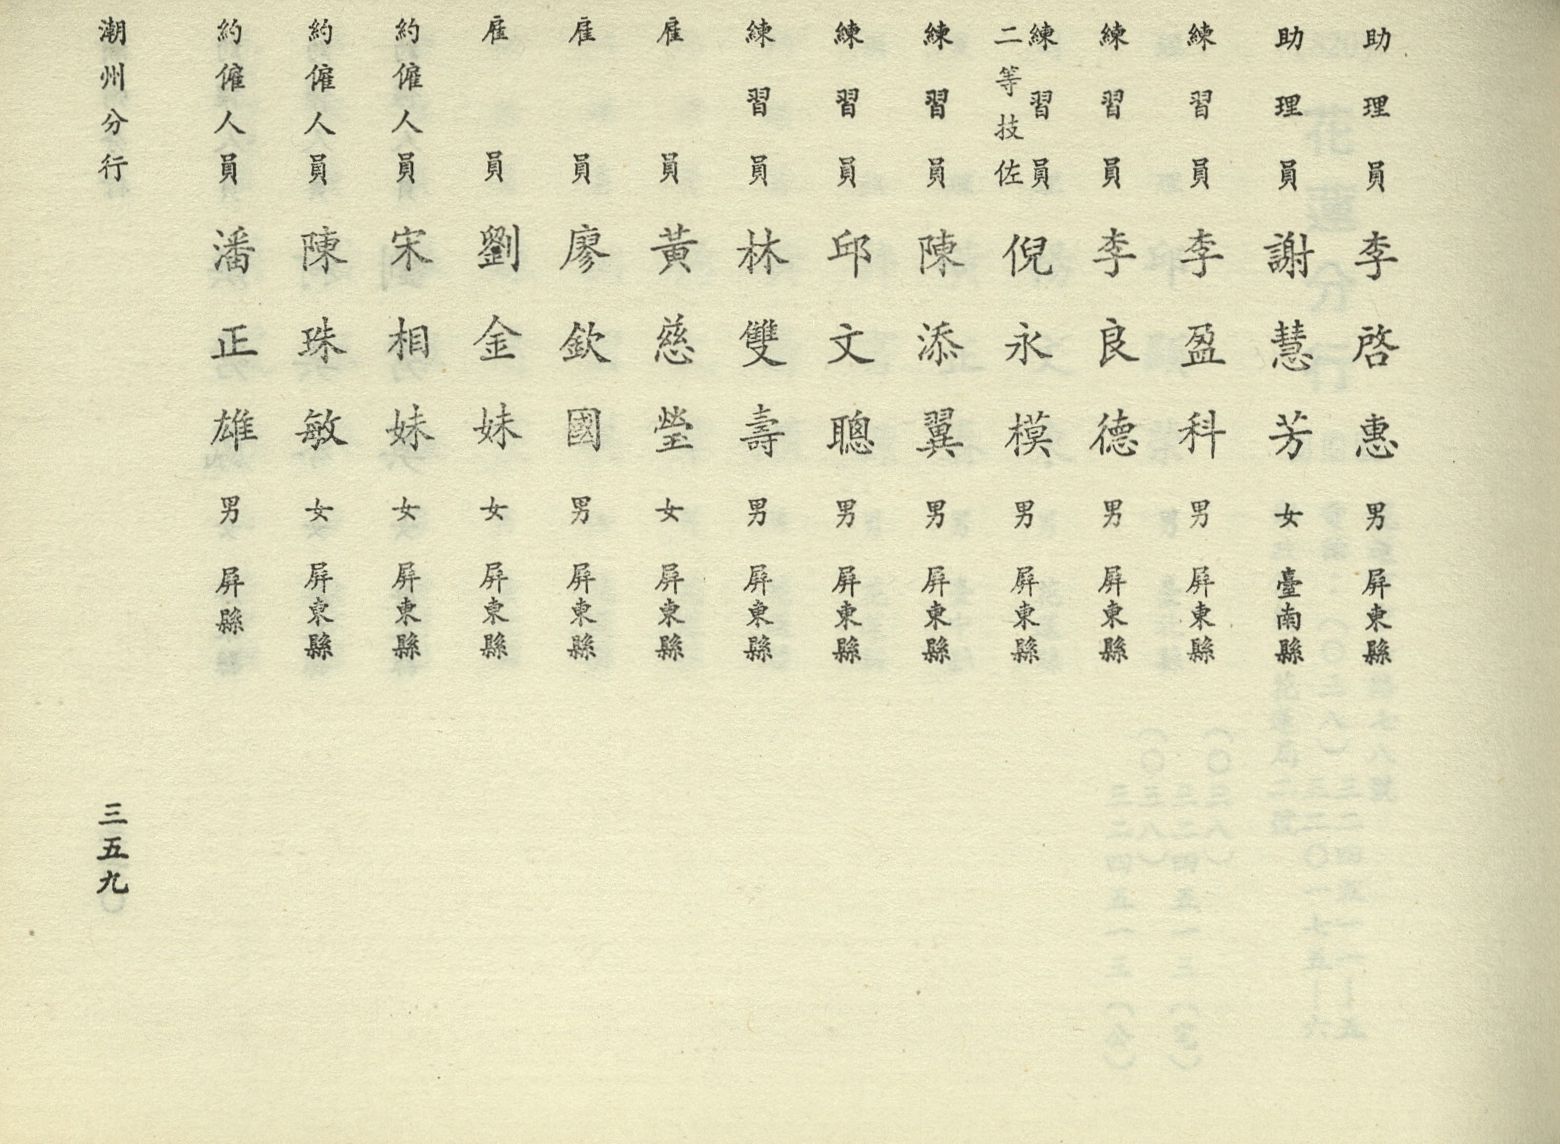 助理員李啓惠男屏東縣
助理員謝慧芳女臺南縣
練習員李盈科男屏東縣
練習員李良德男屏東縣
練習員二等技佐倪永模男屏東縣
練習員陳添翼男屏東縣
練習員邱文聰男屏東縣
練習員林雙壽男屏東縣
雇員黃慈瑩女屏東縣
雇員廖欽國男屏東縣
雇員劉金妹女屏東縣
約僱人員宋相妹女屏東縣
約僱人員陳珠敏女屏東縣
約僱人員潘正雄男屏縣
潮州分行 三五九